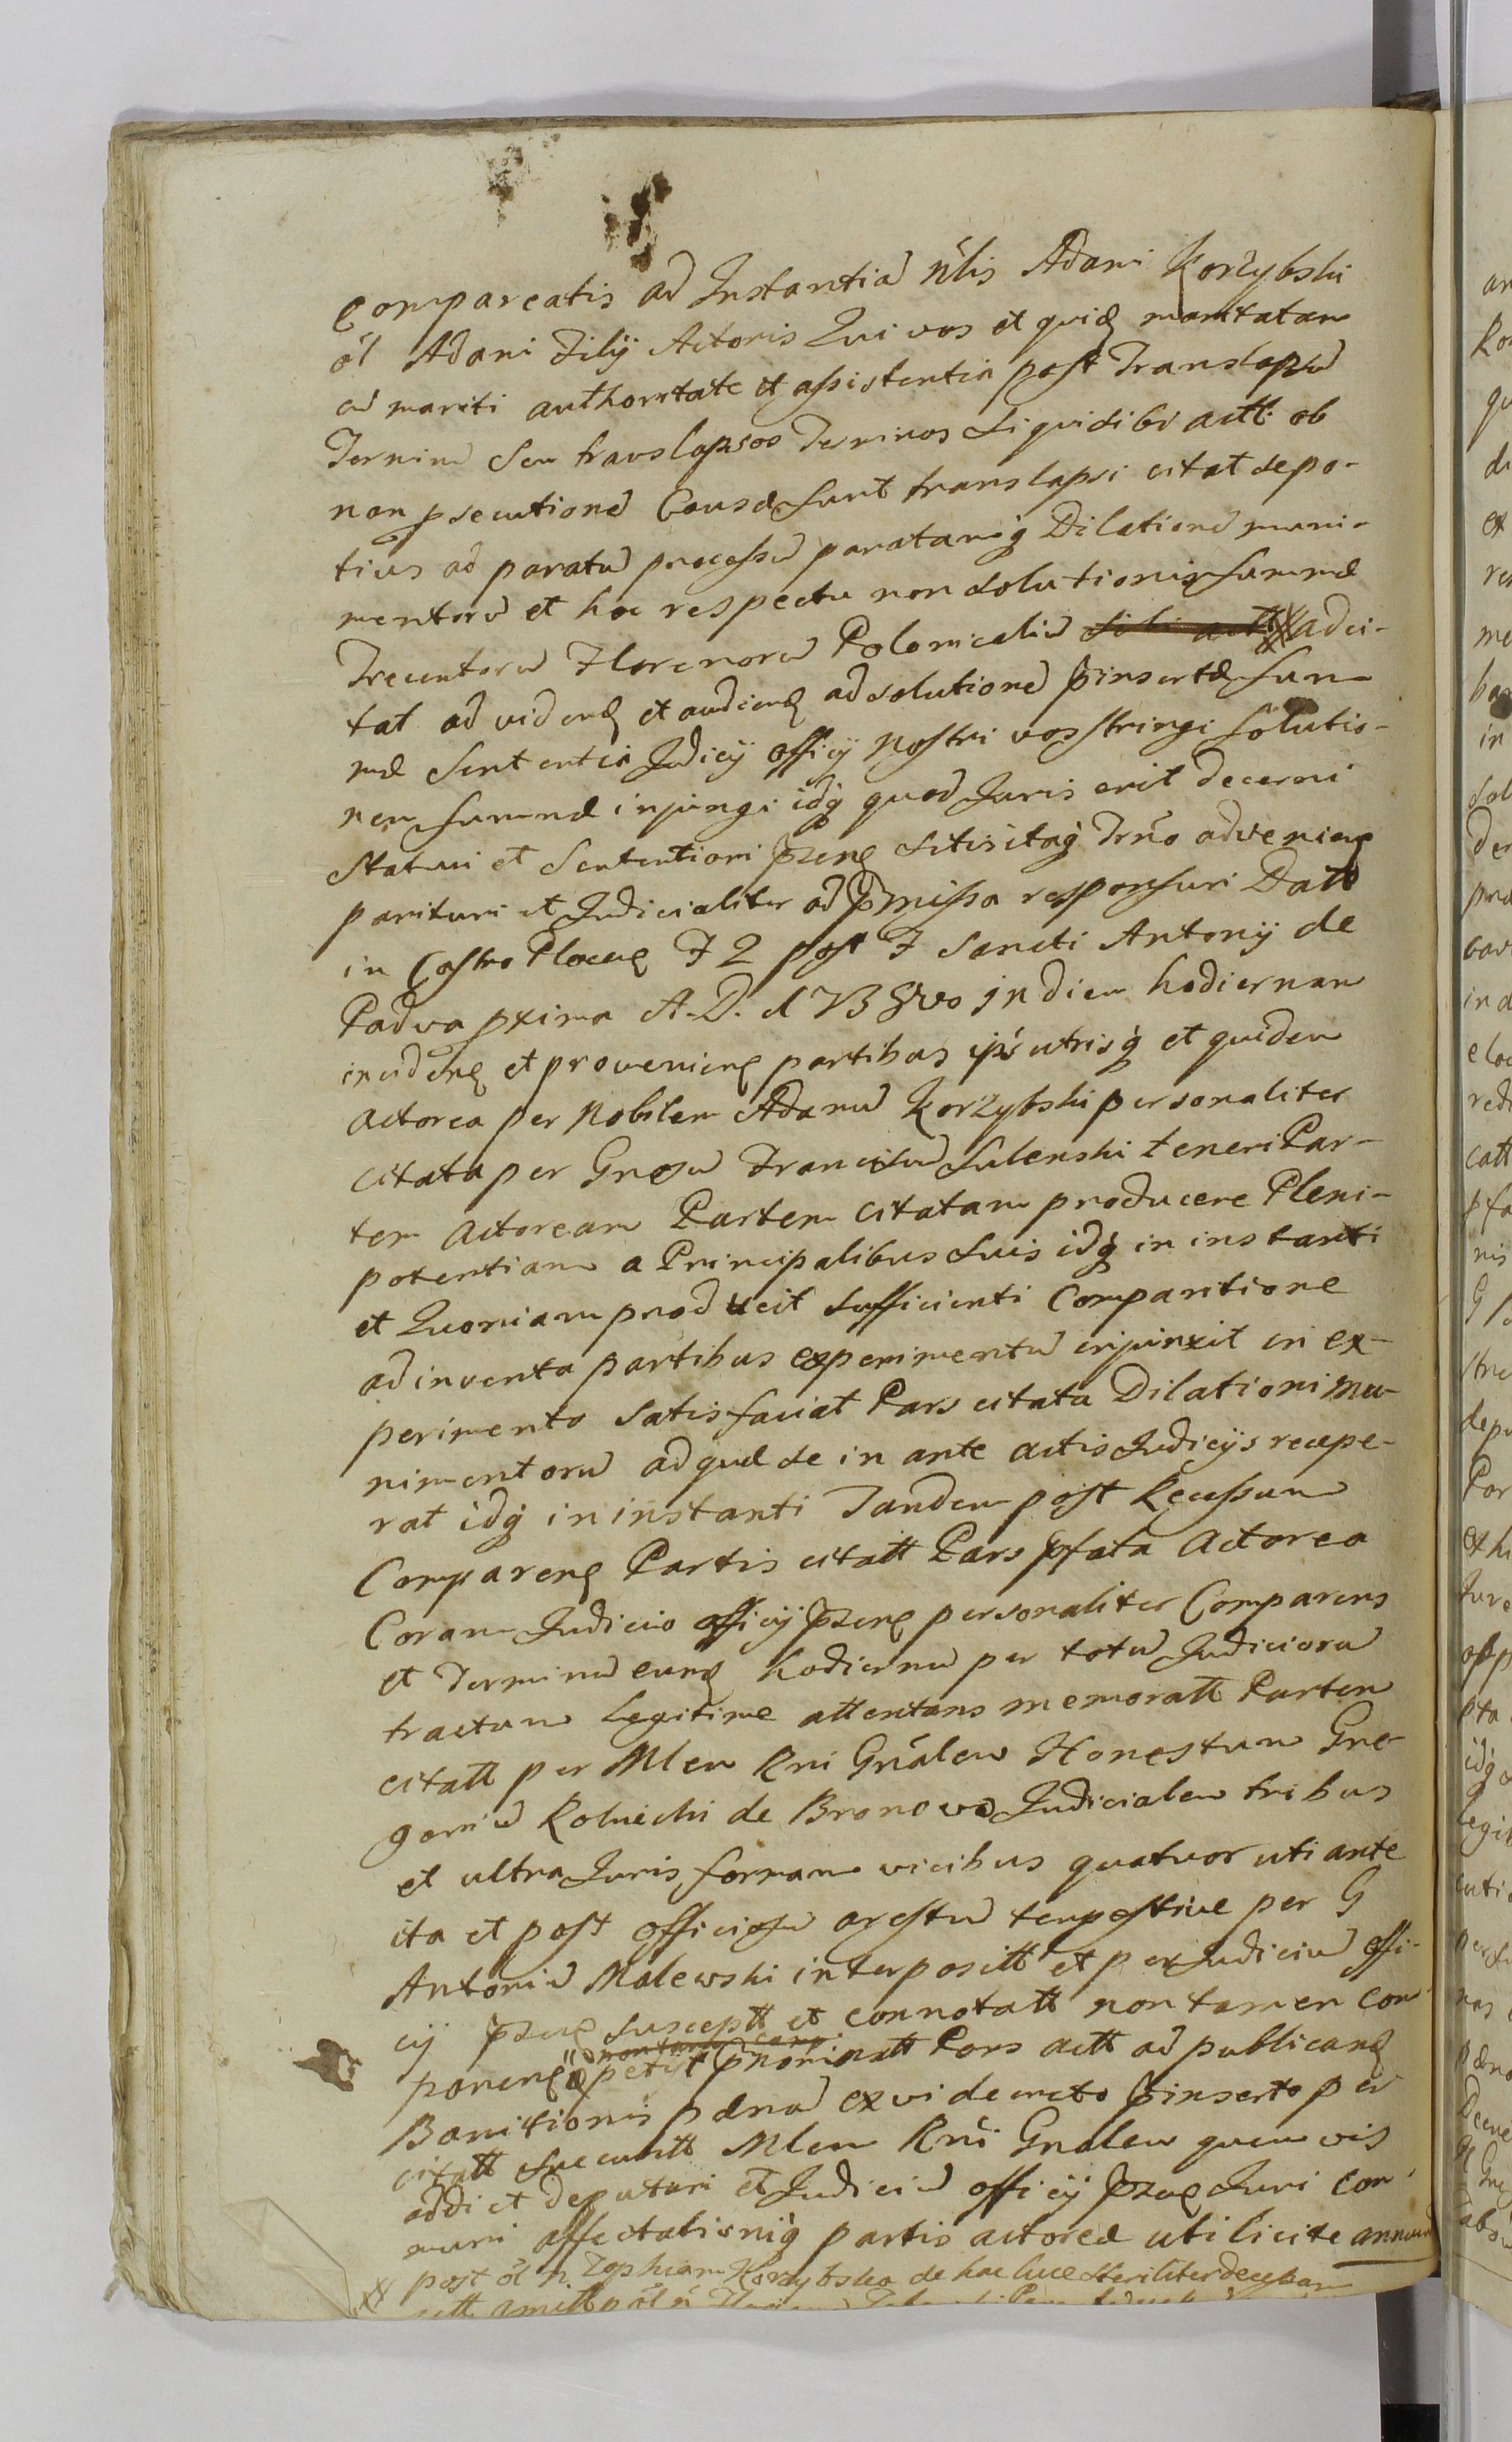 Compareatis ad Instantiā nlis Adami Korzybski
ol Adami Filij Actoris Qui vos et quid maritatam
cū mariti authoritate et assistentia post Translapsū
Terminū seu translapsos Terminos Liquidibi actt ob
non psecutionē Causæ sunt translapsi citat depo-
tius ad paratū processū paratamq Dilationē muni-
mentorū et hoc respectu non solutionis summæ
Trecentorū Florenorū Polonicaliū sibi actt adci-
tat ad vidend et audiend ad solutionē pinsertæ sum-
mæ Sententia Judicij officij nostri vos stringi solutio-
nem summæ injungi idq quod Juris erit decerni
statui et Sententiari pzens sitis itaq Trno advenien
parituri et Judicialiter ad pmissa responsuri Datt
in Castro Plocen F 2 post F Sancti Antonij de
Padva pxima A. D. 1738vo in diem hodiernam
inciden et provenien partibus ips utrisq et quidem
actorea per Nobilem Adamū Korzybski personaliter
citata per Grosū Franciscū Sulenski teneri Par-
tem actoream Partem citatam producere Pleni-
potentiam a Principalibus suis idq in instanti
et Quoniam producit sufficienti Comparitione
adinventa partibus experimentū injunxit in ex-
perimento satisfaciat Pars citata Dilationi mu-
nimentorū ad quæ se in ante actis Judicijs recepe-
rat idq in instanti Tandem post Recessum
Comparen Partis citatt Pars pfata Actorea
Coram Judicio officij pzen personaliter Comparens
et Terminū eund hodiernū per totū Judiciorū
tractum legitime attentans memoratt Partem
citatt per Mlem Rni Gnalem Honestum Gre-
goriū Rolnicki de Bronowo Judicialem tribus
et ultra Juris formam vicibus quatuor uti ante
ita et post officiosū arestū tempestive per G
Antoniū Malewski interpositt et per Judiciū offi-
cij pzens susceptt et connotatt non tamen com-
paren petijt pnominatt Pars actt ad publicand
Bannitionis pænā ex vi decreto pinserto per
citatt succumtt Mlem Rni Gnalem quemvis
addi et deputari et Judiciū officij pzens Juri com-
muni affectationiq partis actoreæ uti licite annuend
post ol n. Zophiam Korzybska de hac luce steriliter decessam